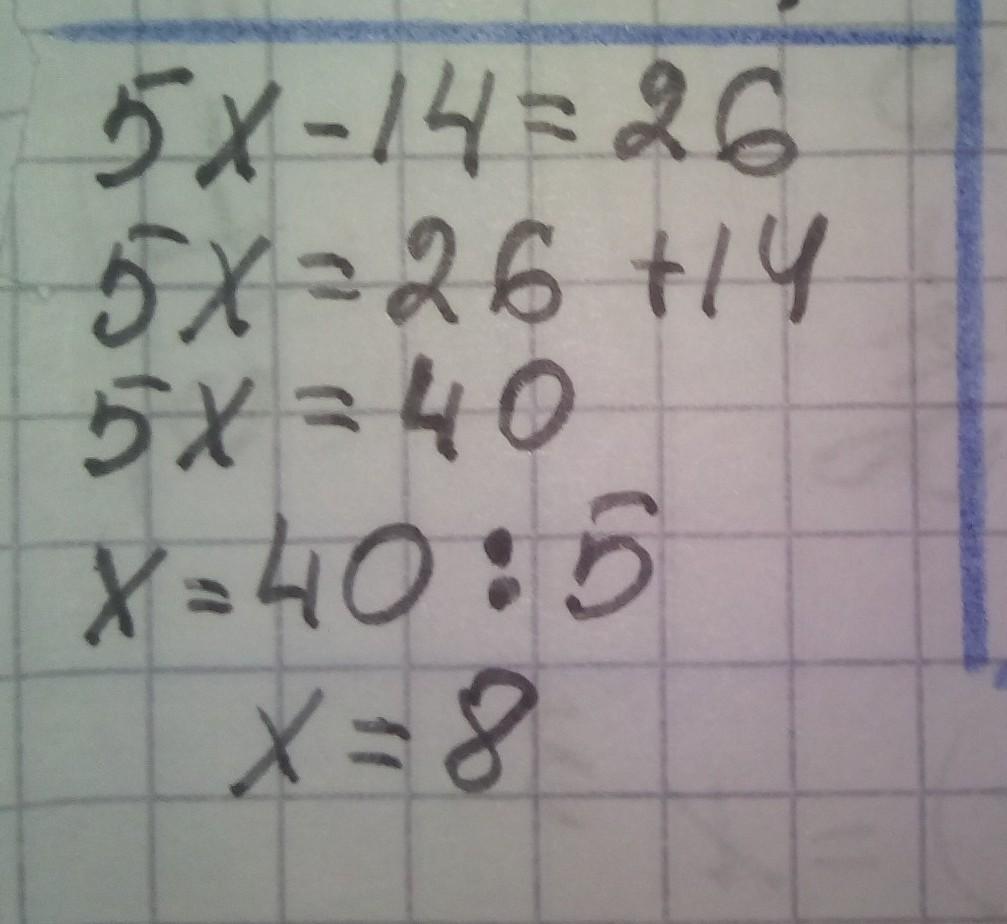 5x-14=26
5x=26+14
5x=40
x=40:5
x=8